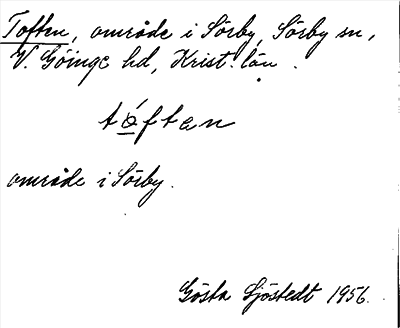 Toften, område i Sörby, Sörby sn,
V. Göinge hd, Krist. län.
tǿften
område i Sörby.
Gösta Sjöstedt 1956.